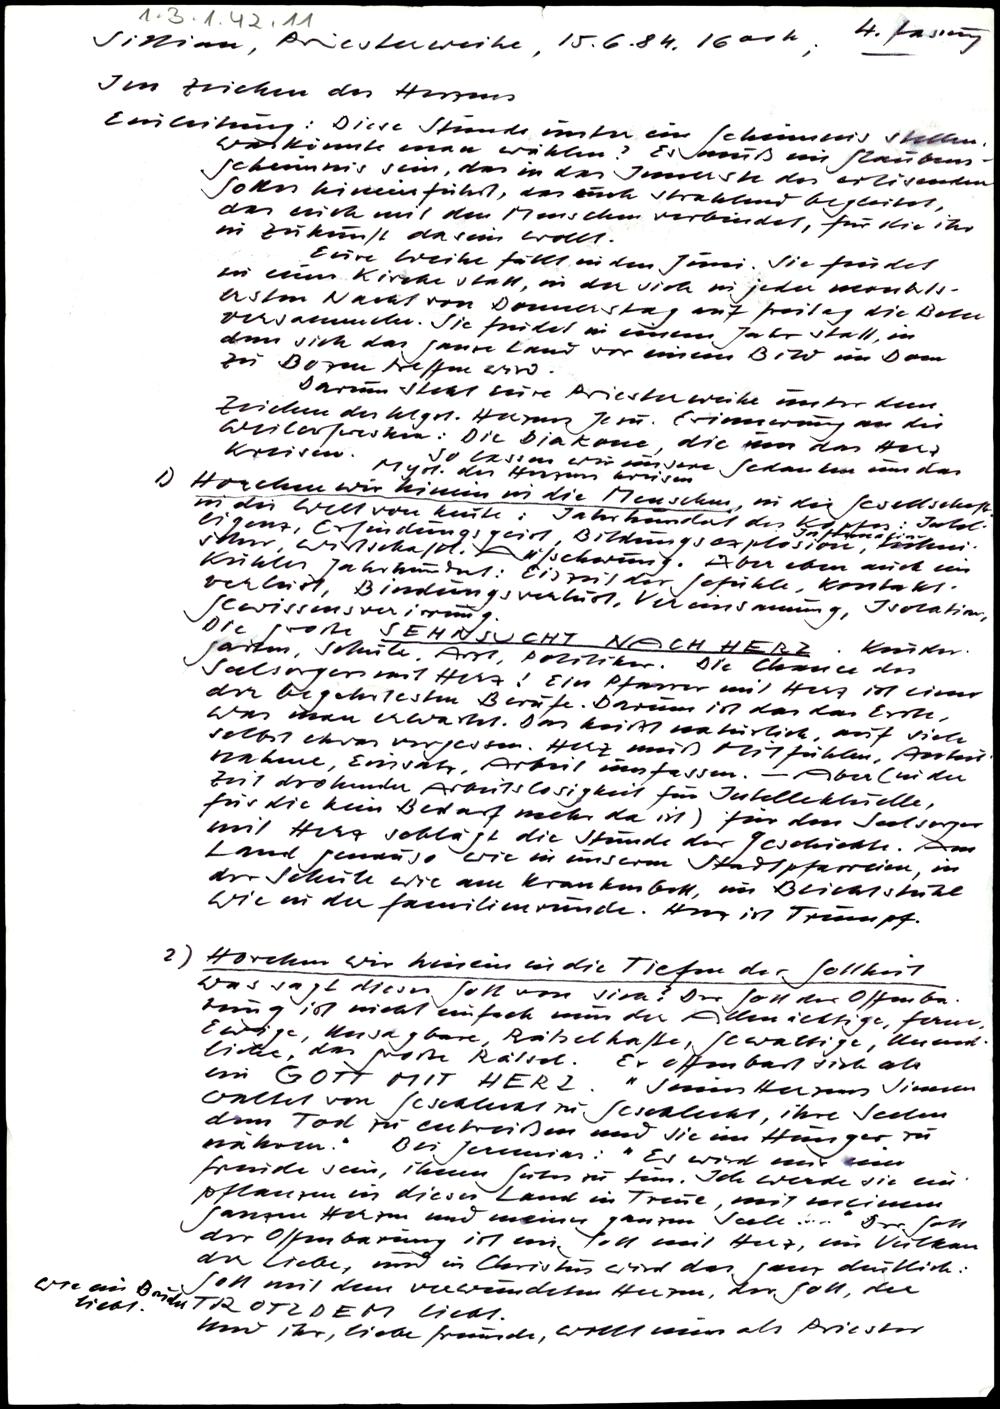 1.3.1.42.11
Sillian, Priesterweihe, 15.6.84. 16 Uhr, 4. Fassung
Im Zeichen des Herzens
Einleitung: Diese Stunde unter ein Geheimnis stellen.
was könnte man wählen? Es muß ein Glaubens-
geheimnis sein, das in das Innerste des erlösenden
Gottes hineinführt, das euch strahlend begleitet,
das euch mit den Menschen verbindet, für die ihr
in Zukunft dasein wollt.
Eure Weihe fällt in den Juni. Sie findet
in einer Kirche statt, in der sich in jeder monats-
ersten Nacht von Donnerstag auf Freitag die Beter
versammeln. Sie findet in einem Jahr statt, in
dem sich das ganze Land vor einem Bild im Dom
zu Bozen treffen wird.
Darum steht eure Priesterweihe unter dem
Zeichen des hlgst. Herzens Jesu. Erinnerung an die
Weilerfresken: Die Diakone, die um das Herz
kreisen. So lassen wir unsere Gedanken um das
Myst. des Herzens kreisen
1) Horchen wir hinein in die Menschen, in die Gesellschaft
in die Welt von heute: Jahrhundert des Kopfes: Intel-
ligenz, Erfindungsgeist, Bildungsexplosion, Information
Wirtschaft. Aufschwung. Aber eben auch ein
kühles Jahrhundert: Eiszeit der Gefühle, Kontakt-
verlust, Bindungsverlust, Vereinsamung, Isolation,
Gewissensverirrung.
Die große SEHNSUCHT NACH HERZ. Kinder-
garten, Schule, Arzt, Politiker. Die Chance des
Seelsorgers mit Herz! Ein Pfarrer mit Herz ist einer
der begehrtesten Berufe. Darum ist das das Erste,
was man erwartet. Das heißt natürlich, auf sich
selbst etwas vergessen. Herz muß Mitfühlen, Anteil-
nahme, Einsatz, Arbeit umfassen. – Aber (in der
Zeit drohender Arbeitslosigkeit für Intellektuelle,
für die kein Bedarf mehr da ist) für den Seelsorger
mit Herz schlägt die Stunde der Geschichte. Am
Land genauso wie in unseren Stadtpfarreien, in
der Schule wie am Krankenbett, im Beichtstuhl
wie in der Familienrunde. Herz ist Trumpf.
2) Horchen wir hinein in die Tiefen der Gottheit
Was sagt dieser Gott von sich? Der Gott der Offenba-
rung ist nicht einfach nur der Allmächtige, Ferne,
Ewige, Unsagbare, Rätselhafte, Gewaltige, Unend-
liche, das große Rätsel. Er offenbart sich als
ein GOTT MIT HERZ. "Seines Herzens Sinnen
waltet von Geschlecht zu Geschlecht, ihre Seelen
dem Tod zu entreißen und sie im Hunger zu
nähren." Bei Jeremias: "Es wird mir eine
Freude sein, ihnen Gutes zu tun. Ich werde sie ein-
pflanzen in dieses Land in Treue, mit meinem
ganzen Herzen und meiner ganzen Seele ..." Der Gott
der Offenbarung ist ein Gott mit Herz, ein Vulkan
der Liebe, und in Christus wird das ganz deutlich:
Gott mit dem verwundeten Herzen, der Gott, der
wie ein Bruder liebt.
TROTZDEM liebt.
Und ihr, liebe Freunde, wollt nun als Priester